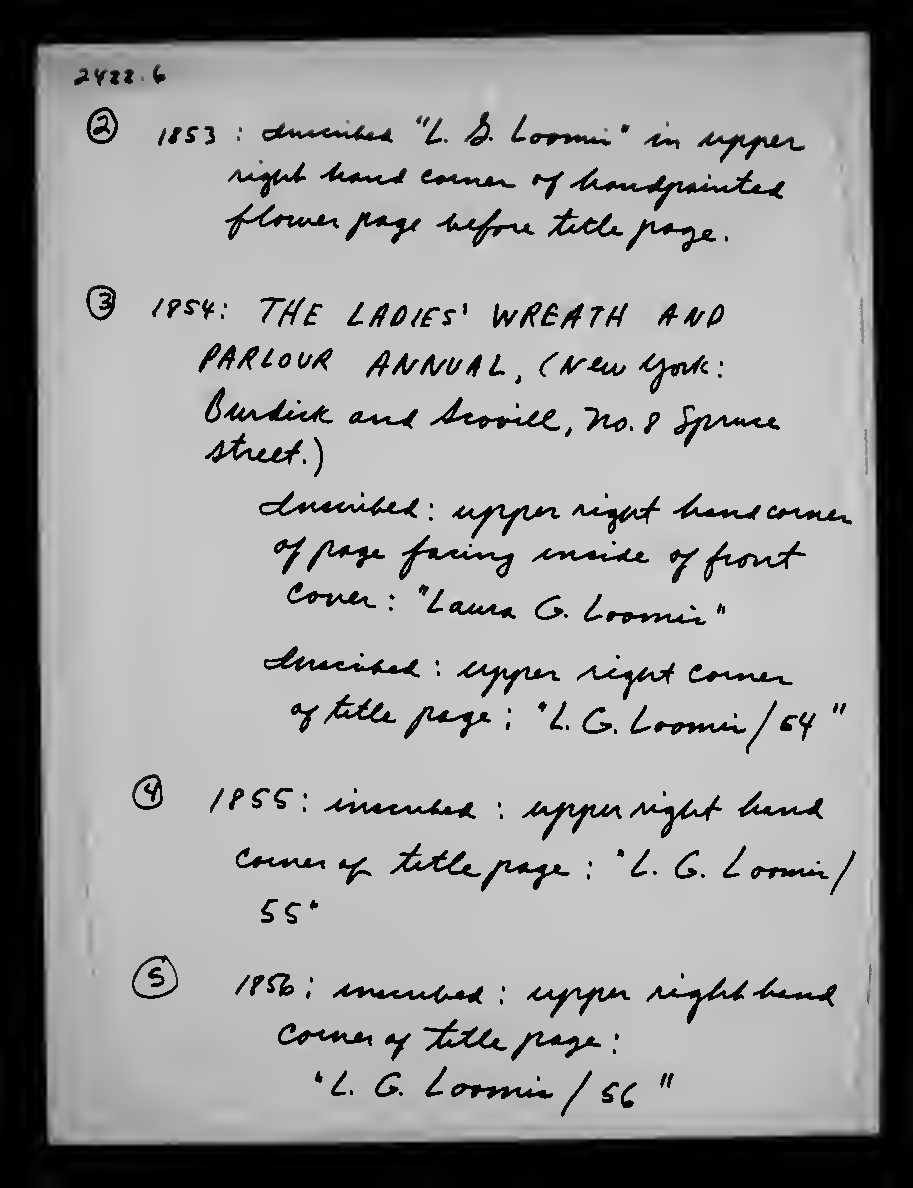 2422.6
② 1853 : Inscribed "L. G. Loomis" in upper
right hand corner of handpainted
flower page before title page.
③ 1854: THE LADIES' WREATH AND
PARLOUR ANNUAL, (New York:
Burdick and Scovill, No. 8 Spruce
street.)
Inscribed: upper right hand corner
of page facing inside of front
cover: "Laura G. Loomis"
Inscribed: upper right corner
of title page: "L. G. Loomis / 54"
④ 1855: inscribed: upper right hand
corner of title page: "L. G. Loomis /
55"
⑤ 1856: inscribed: upper right hand
corner of title page:
"L. G. Loomis / 56"